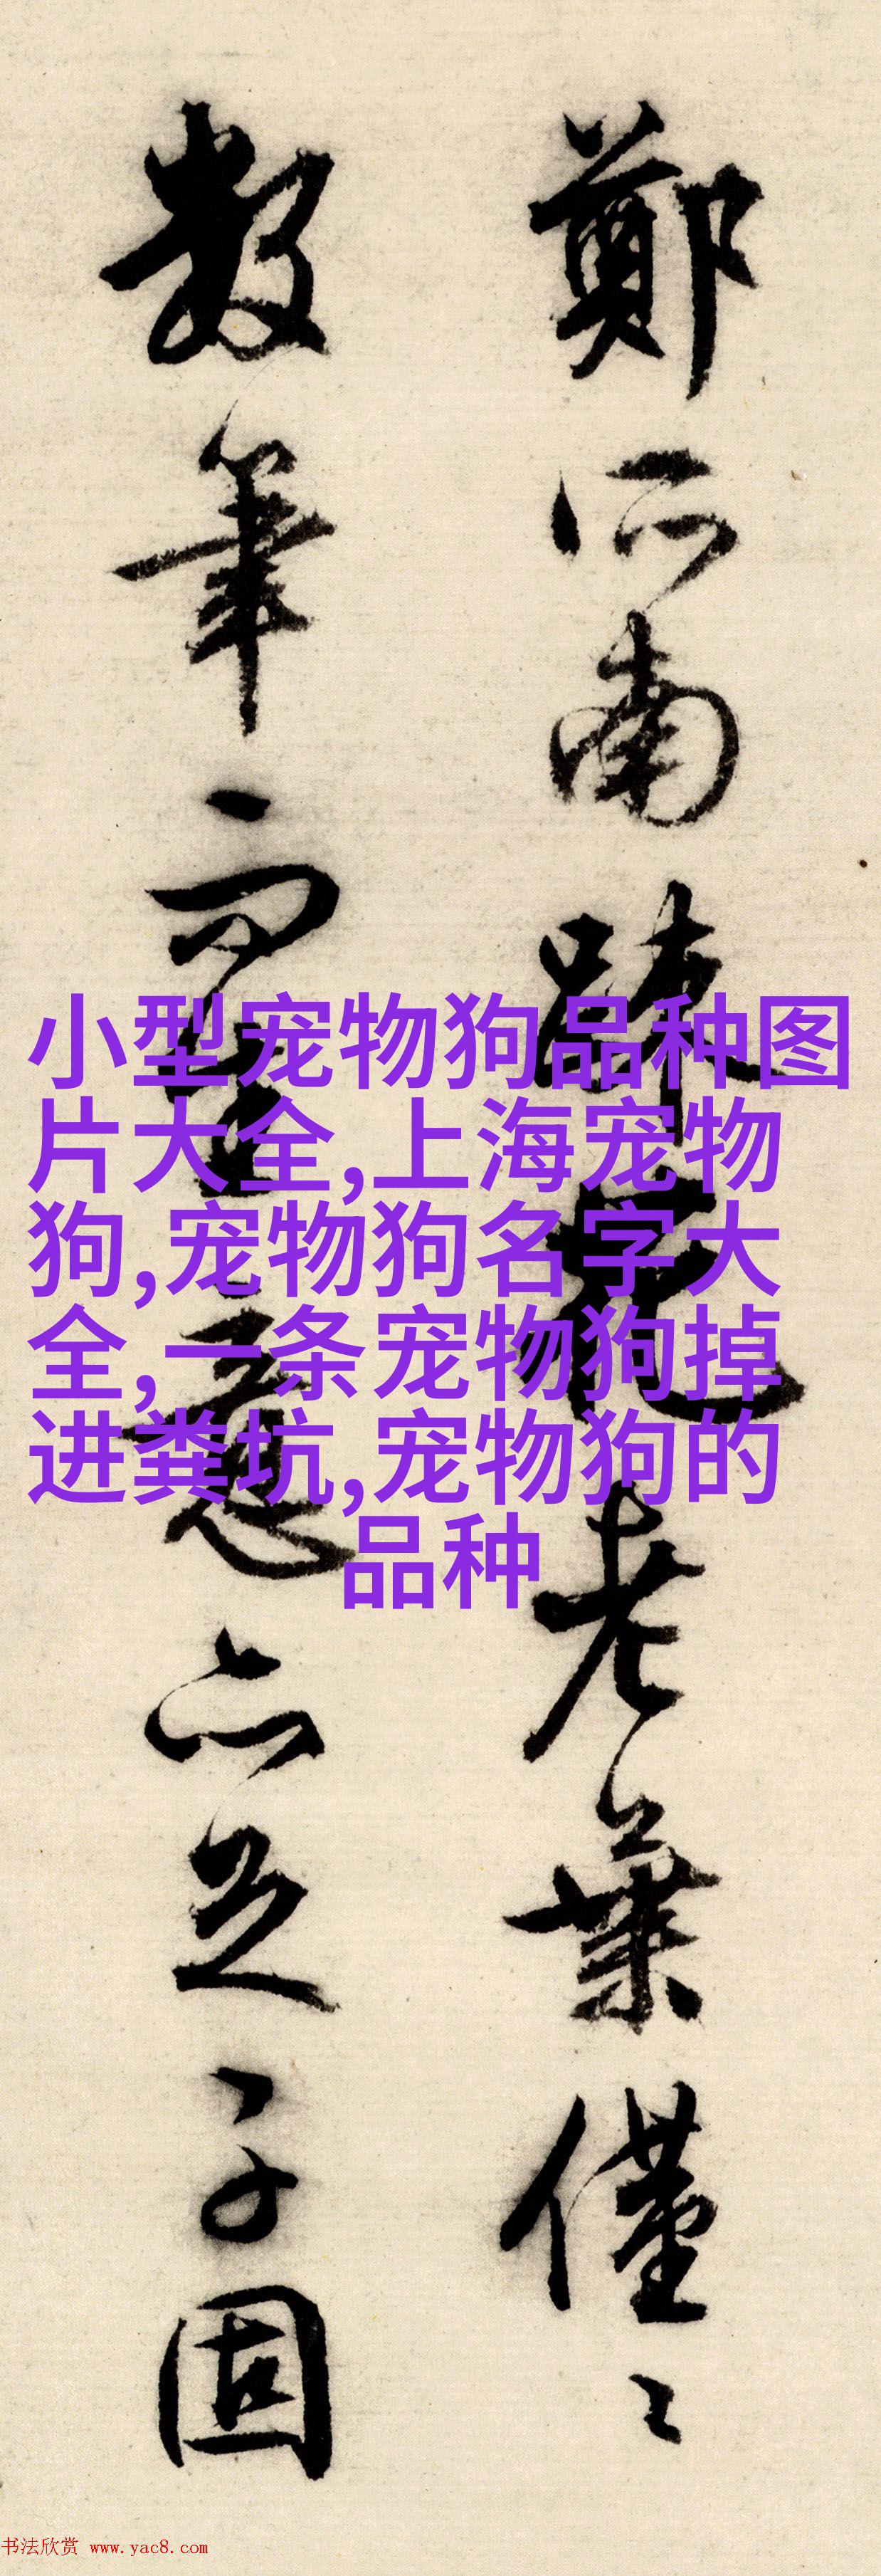 鄭所南疎花老葉僅〻
數筆而生意亦足子固
小型宠物狗品种图
片大全,上海宠物
狗,宠物狗名字大
全,一条宠物狗掉
进粪坑,宠物狗的
品种
书法欣赏 www.yac8.com